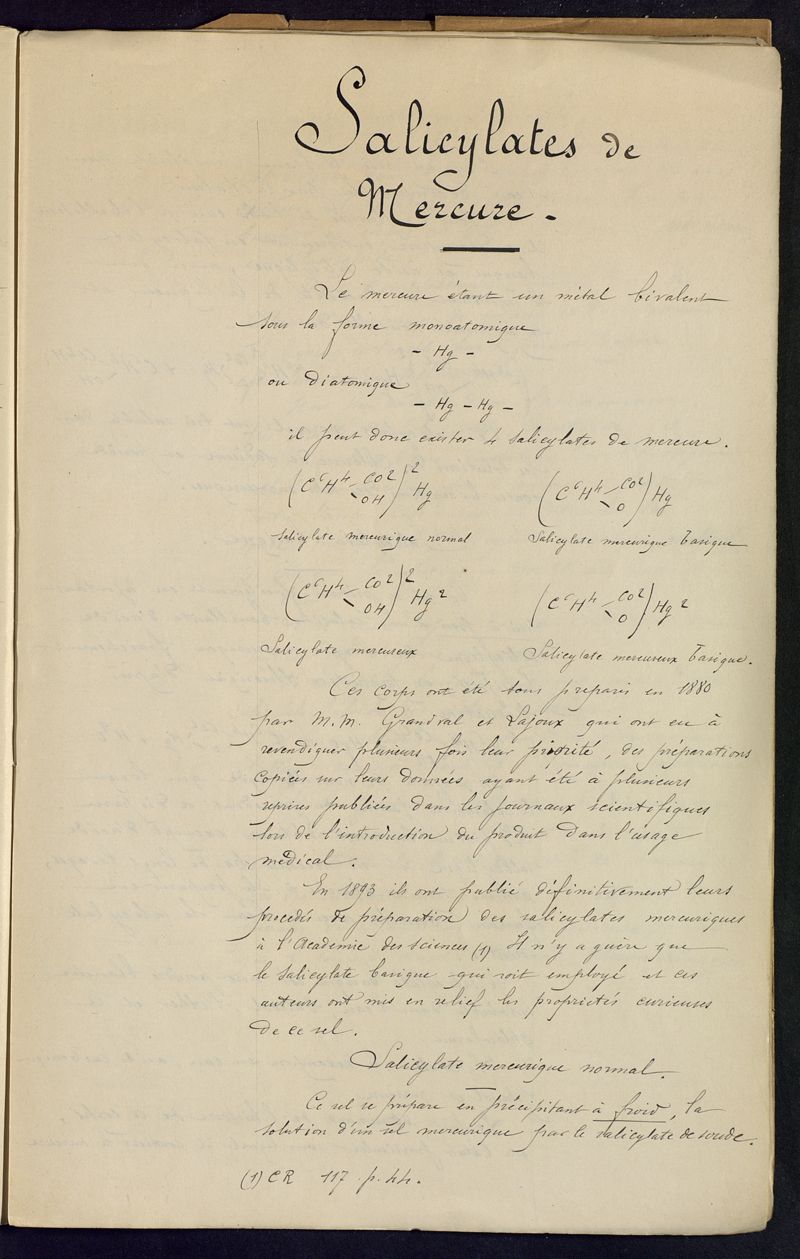 Salicylates de
Mercure.
Le mercure étant un métal bivalent
sous la forme monoatomique
- Hg -
ou diatomique
- Hg - Hg -
il peut donc exister 4 salicylates de mercure.
(C⁶H⁴ - CO² - OH)² Hg (C⁶H⁴ - CO² - O) Hg
Salicylate mercurique normal Salicylate mercurique basique
(C⁶H⁴ - CO² - OH)² Hg² (C⁶H⁴ - CO² - O) Hg²
Salicylate mercureux Salicylate mercureux basique.
Ces corps ont été tous préparés en 1880
par M.M. Grandval et Lajoux qui ont eu à
revendiquer plusieurs fois leur priorité, des préparations
copiées sur leurs données ayant été à plusieurs
reprises publiées dans les journaux scientifiques
lors de l'introduction du produit dans l'usage
médical.
En 1893 ils ont publié définitivement leurs
procédés de préparation des salicylates mercuriques
à l'Academie des sciences (1) Il n'y a guère que
le salicylate basique qui soit employé et ces
auteurs ont mis en relief les propriétés curieuses
de ce sel.
Salicylate mercurique normal.
Ce sel se prépare en précipitant à froid, la
solution d'un sel mercurique par le salicylate de soude.
(1) CR 117 p. 44.